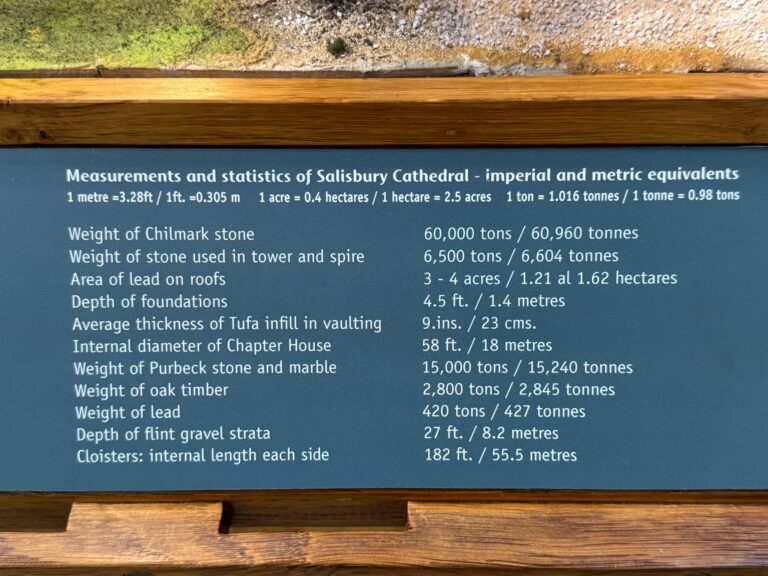 Measurements and statistics of Salisbury Cathedral - imperial and metric equivalents
1 metre =3.28ft / 1ft. =0.305 m 1 acre = 0.4 hectares / 1 hectare = 2.5 acres 1 ton = 1.016 tonnes / 1 tonne = 0.98 tons
Weight of Chilmark stone 60,000 tons / 60,960 tonnes
Weight of stone used in tower and spire 6,500 tons / 6,604 tonnes
Area of lead on roofs 3 - 4 acres / 1.21 al 1.62 hectares
Depth of foundations 4.5 ft. / 1.4 metres
Average thickness of Tufa infill in vaulting 9.ins. / 23 cms.
Internal diameter of Chapter House 58 ft. / 18 metres
Weight of Purbeck stone and marble 15,000 tons / 15,240 tonnes
Weight of oak timber 2,800 tons / 2,845 tonnes
Weight of lead 420 tons / 427 tonnes
Depth of flint gravel strata 27 ft. / 8.2 metres
Cloisters: internal length each side 182 ft. / 55.5 metres